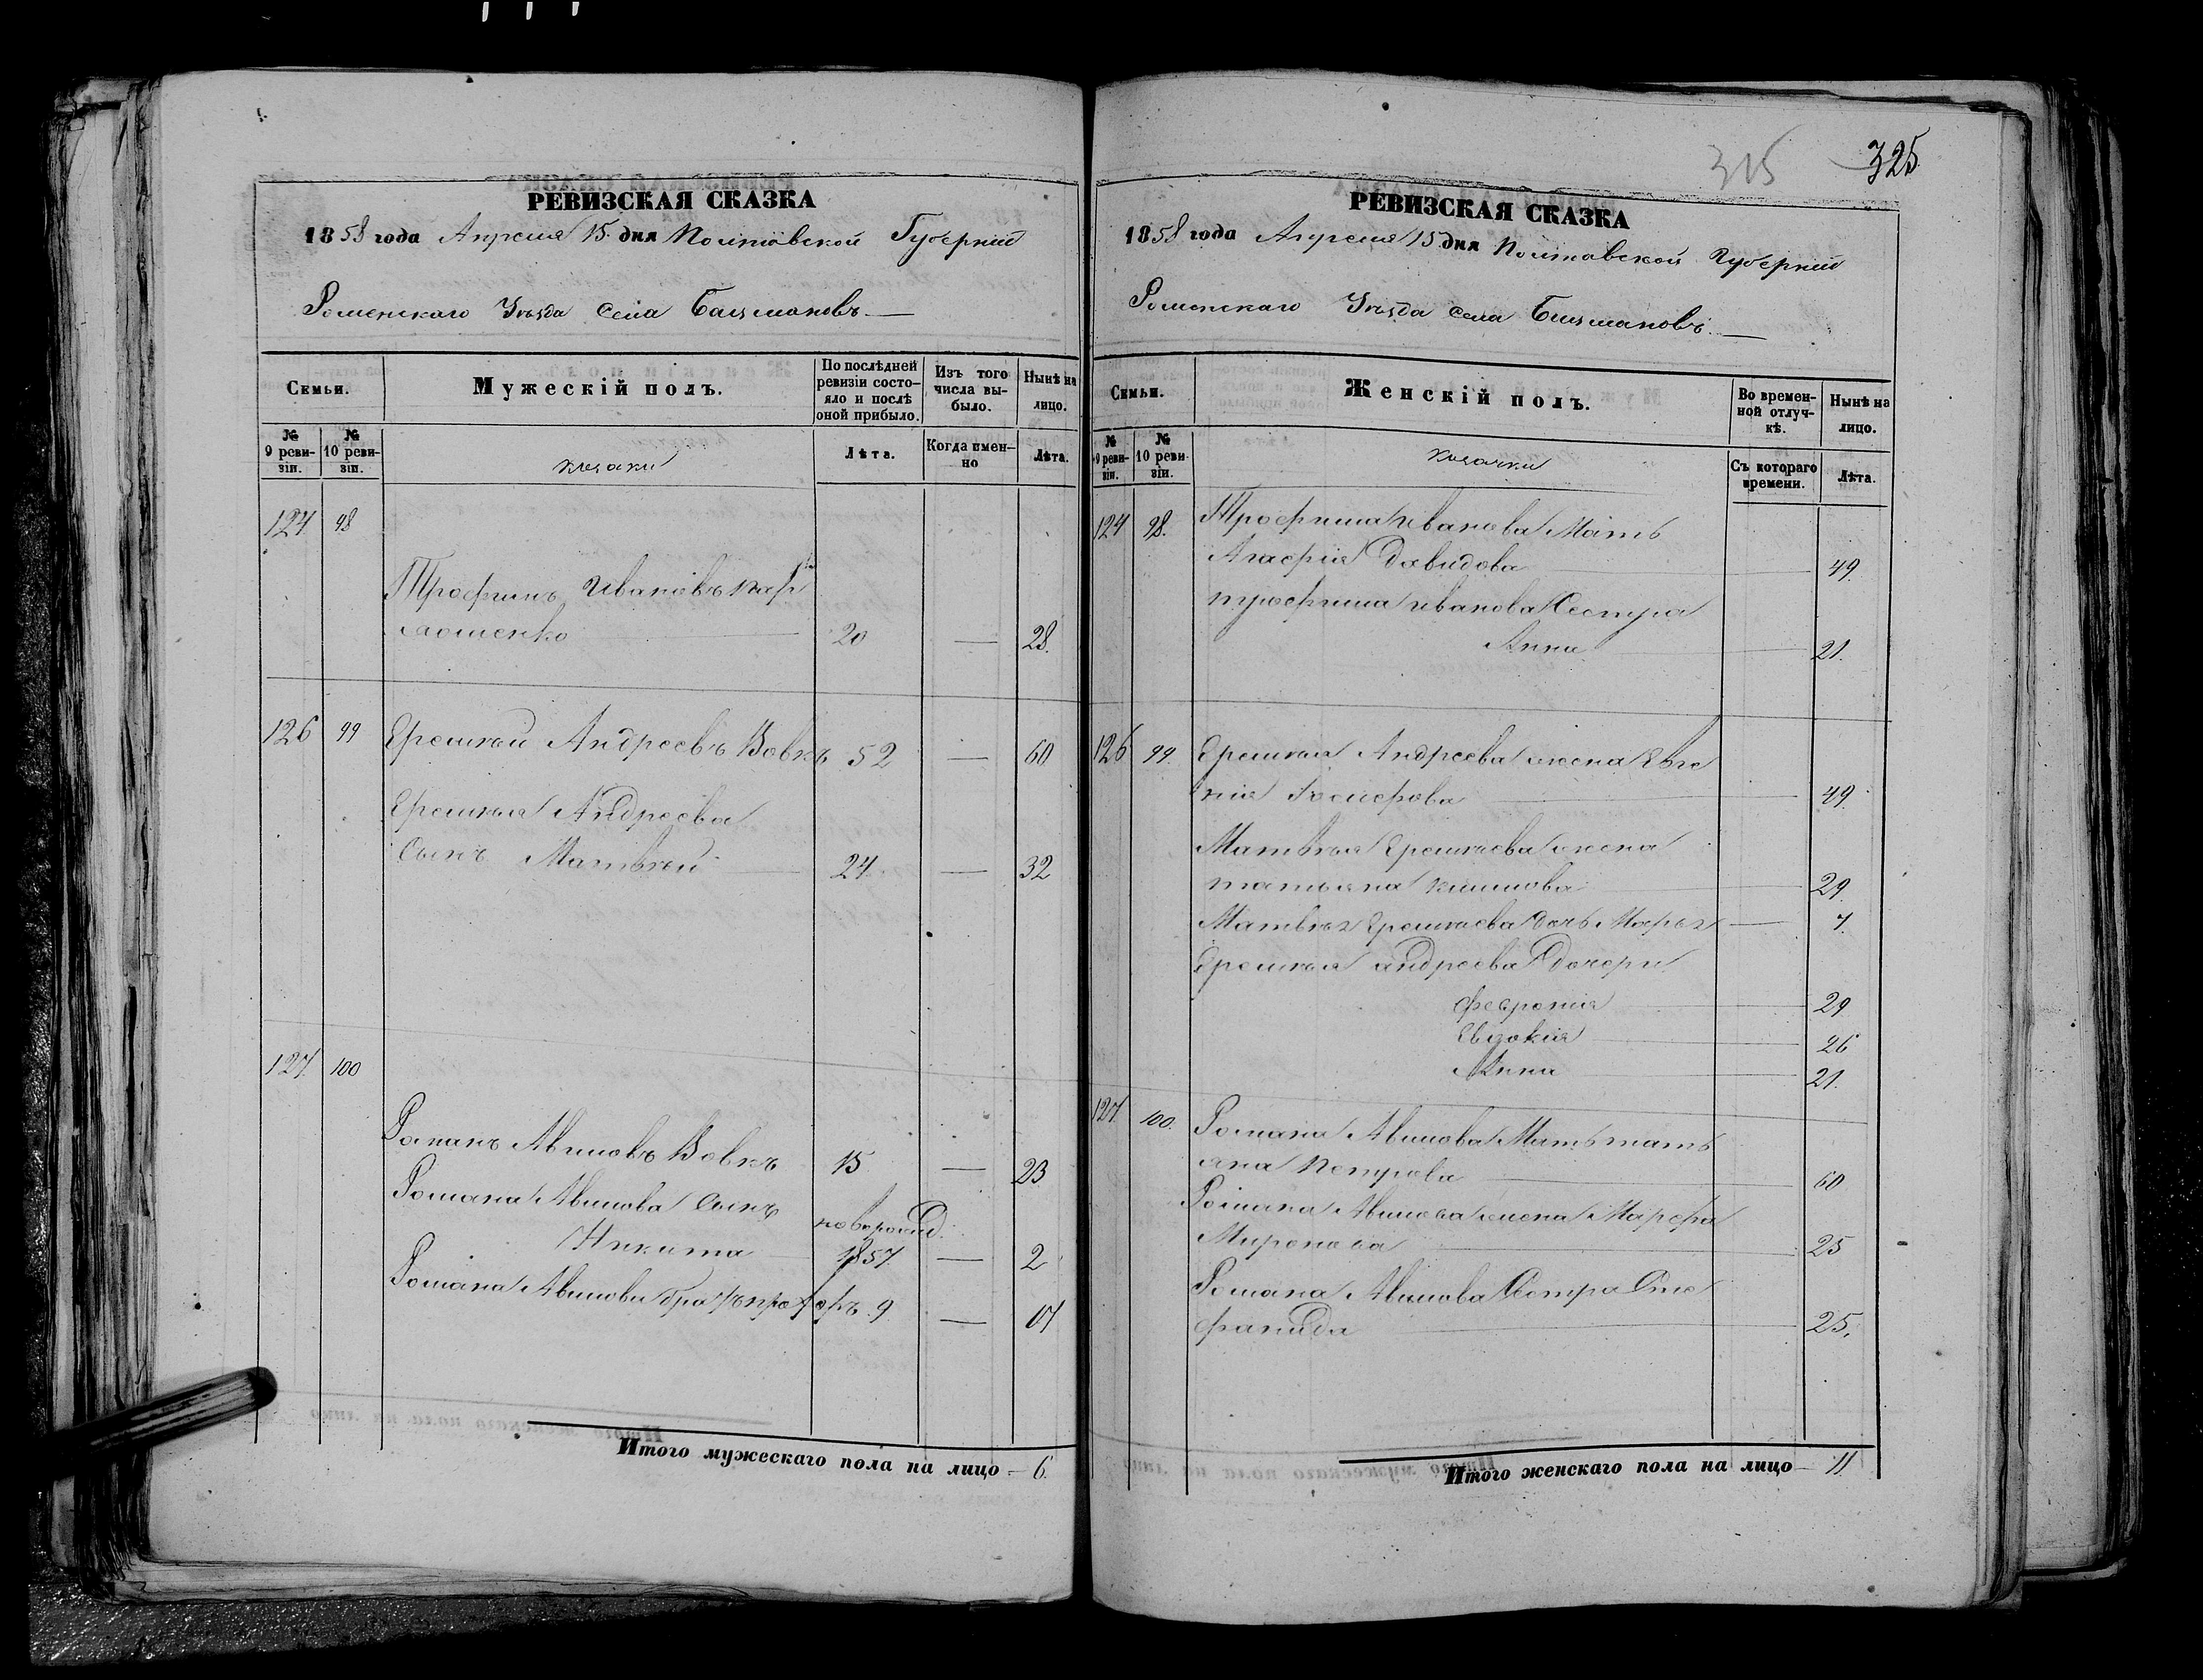 315 325
РЕВИЗСКАЯ СКАЗКА
1858 года Апреля 15 дня Полтавской Губернии
Роменскаго Уѣзда Села Бацмановъ
Семьи.
Мужескій полъ.
По послѣдней ревизіи состояло и послѣ оной прибыло.
Изъ того числа выбыло.
Нынѣ на лицо.
№ 9 ревизіи.
№ 10 ревизіи.
козаки
Лѣта.
Когда именно
Лѣта.
124 98
Трофимъ Ивановъ
20 — 28.
126 99 Еремѣй Андреевъ Вовкъ 52 — 60
Еремѣя Андреева
Сынъ Матвѣй 24 — 32
127 100
Романъ Авимовъ Вовкъ 15 — 23
Романа Авимова Сынъ новорожд.
Никита 1857 — 2
Романа Авимова братъ Прохоръ 9 — 17
Итого мужескаго пола на лицо – 6.
РЕВИЗСКАЯ СКАЗКА
1858 года Апреля 15 дня Полтавской Губернии
Роменскаго Уѣзда Села Бацмановъ
Семьи.
Женскій полъ.
Во временной отлучкѣ.
Нынѣ на лицо.
№ 9 ревизіи.
№ 10 ревизіи.
козачки
Съ котораго времени.
Лѣта.
124 98. Трофима Иванова Мать
Агафія Давидова 49.
трофима иванова Сестра
Анна 21.
126 99. Еремѣя Андреева жена Евге
нія 49.
Матвѣя Еремѣева жена
татьяна 29.
Матвѣя Еремѣева дочь Марья — 7.
Еремѣя андреева Дочери
Феврония 29
Евдокія 26
Анна 21.
127 100. Романа Авимова Мать тать
яна Петрова 60
Романа Авимова жена Марфа
Миронова 25
Романа Авимова Сестра Сте
фанида 25.
Итого женскаго пола на лицо – 11